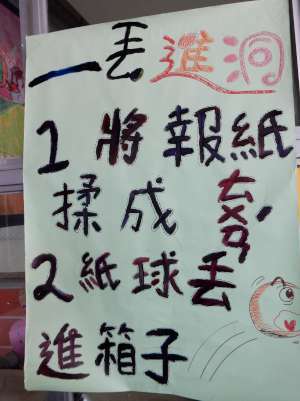 一丟進洞
1 將報紙
揉成ㄊㄨㄢˊ
2 紙球丟
進箱子